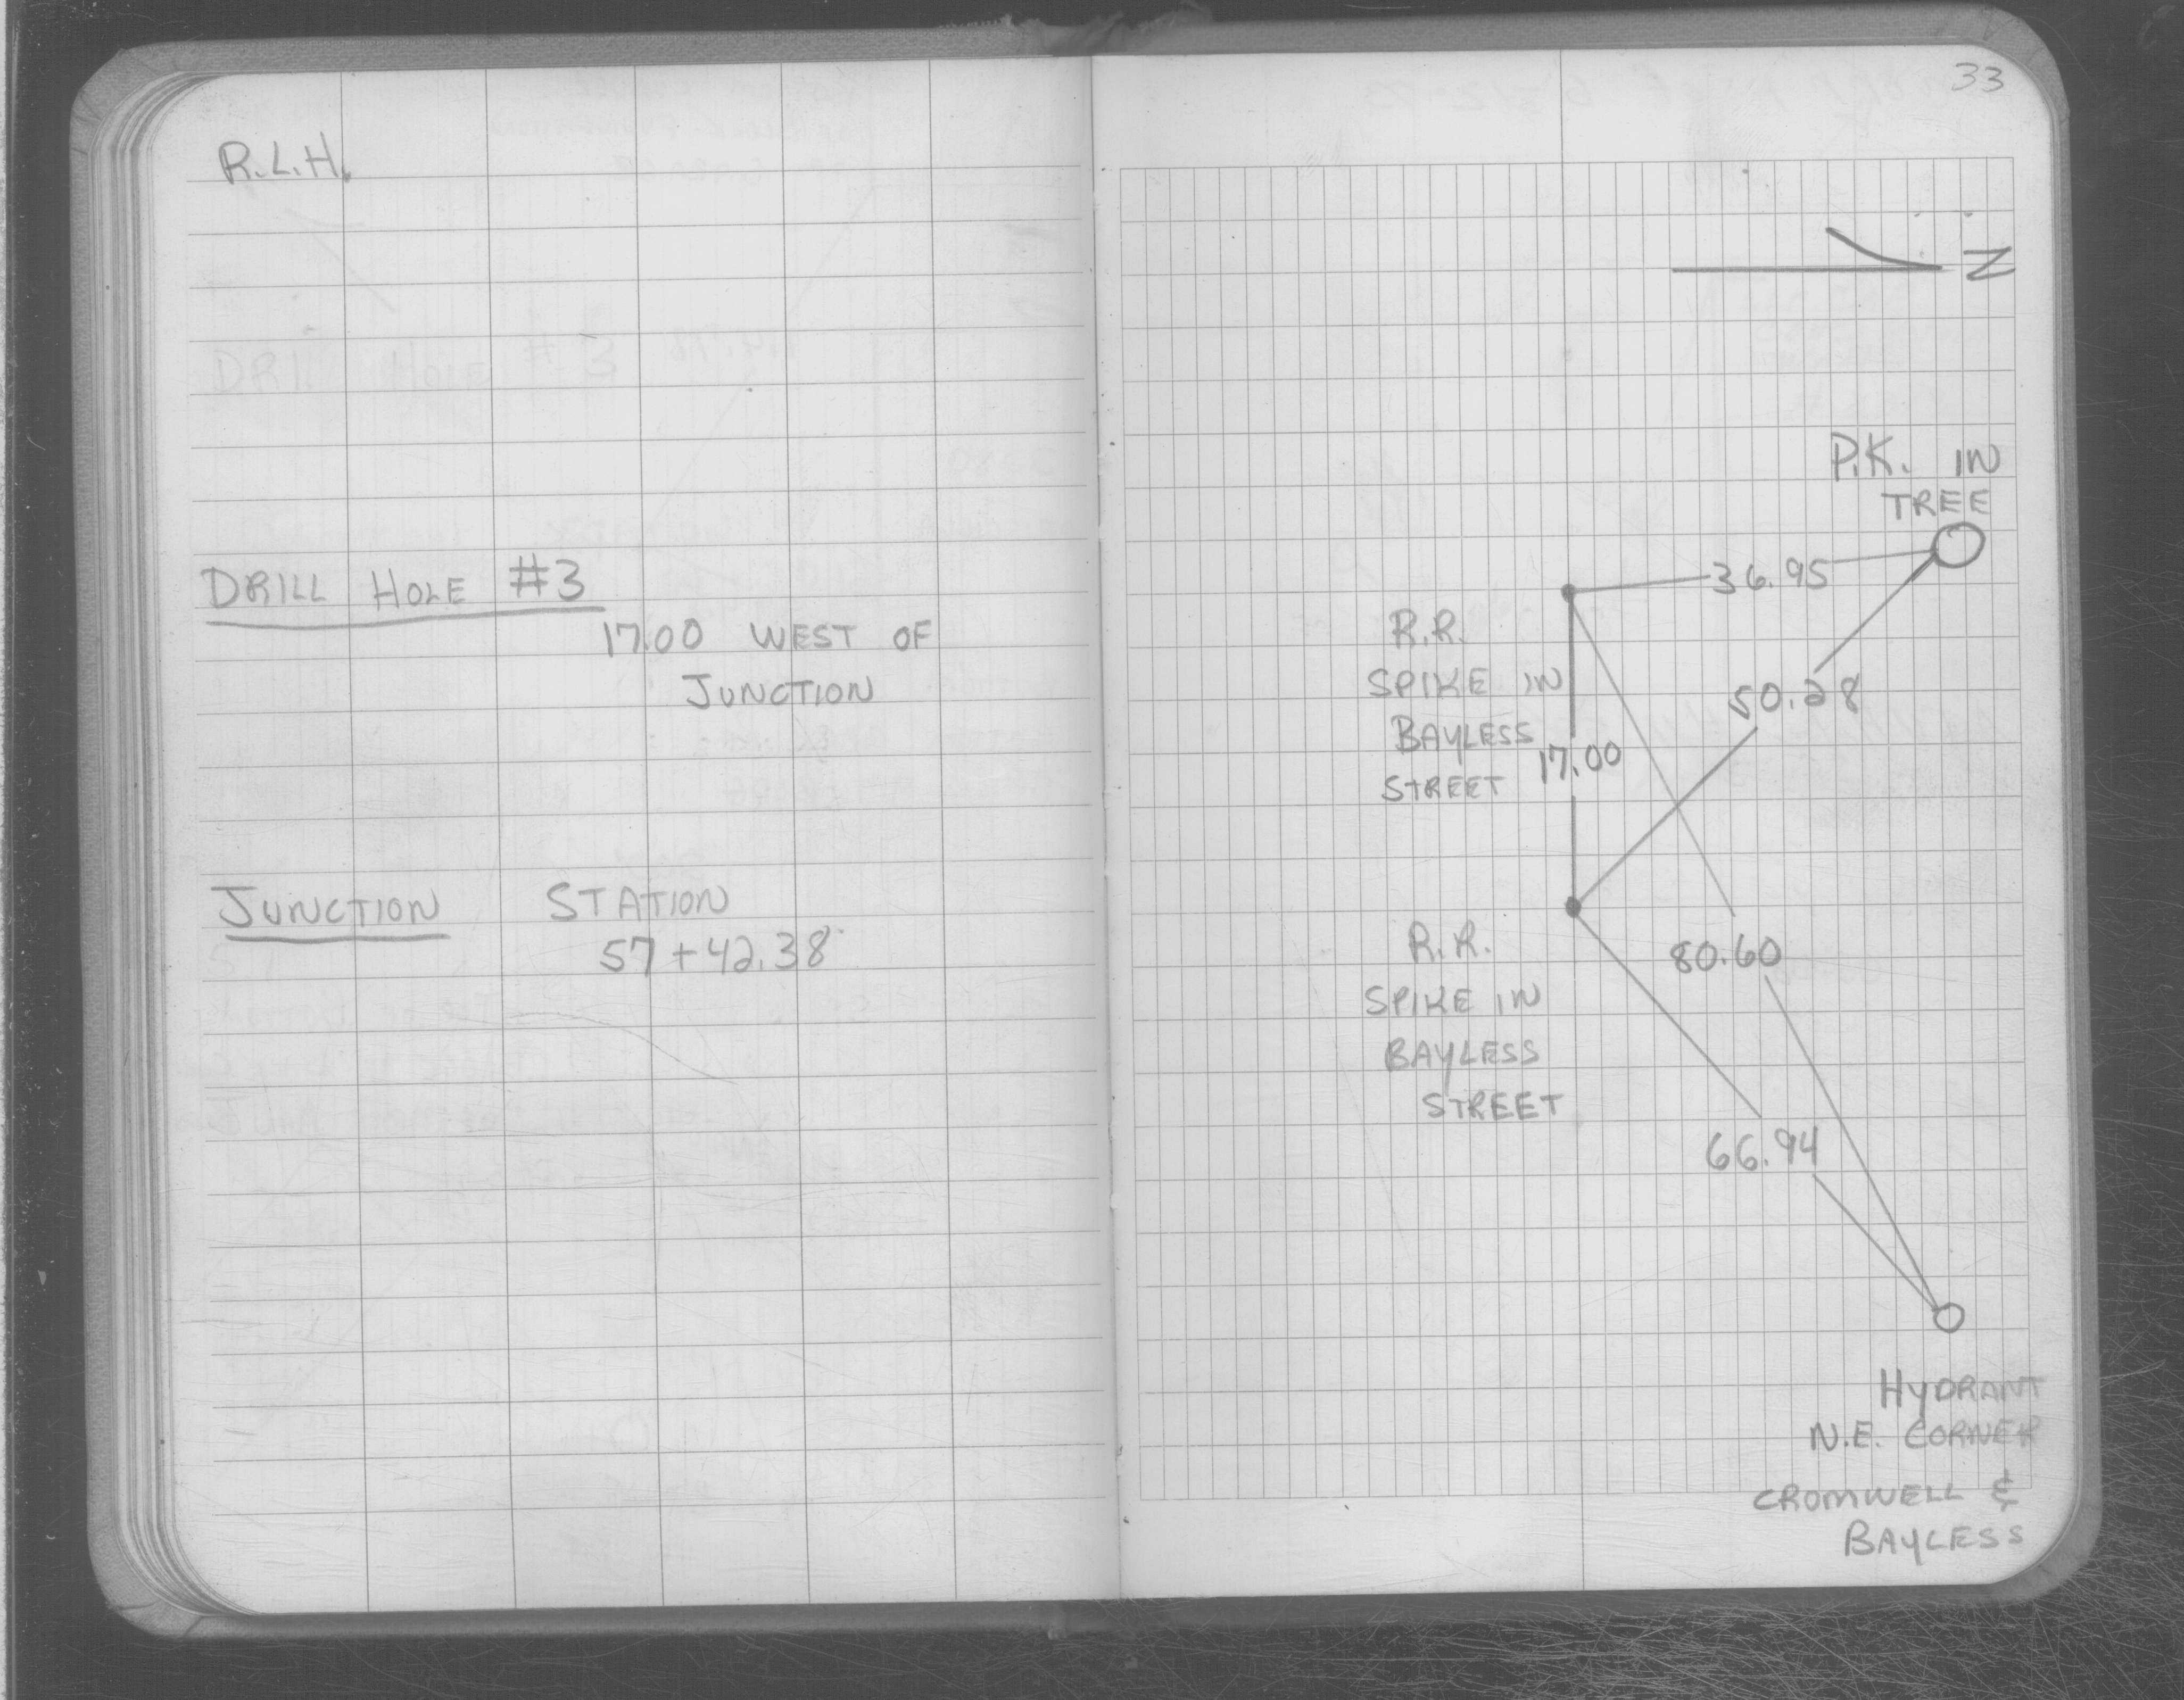 R.L.H.
DRILL HOLE #3
17.00 WEST OF
JUNCTION
JUNCTION STATION
57+42.38
33
N
P.K. IN
TREE
36.95
R.R.
SPIKE IN
BAYLESS
STREET
50.28
17.00
80.60
R.R.
SPIKE IN
BAYLESS
STREET
66.94
HYDRANT
N.E. CORNER
CROMWELL &
BAYLESS